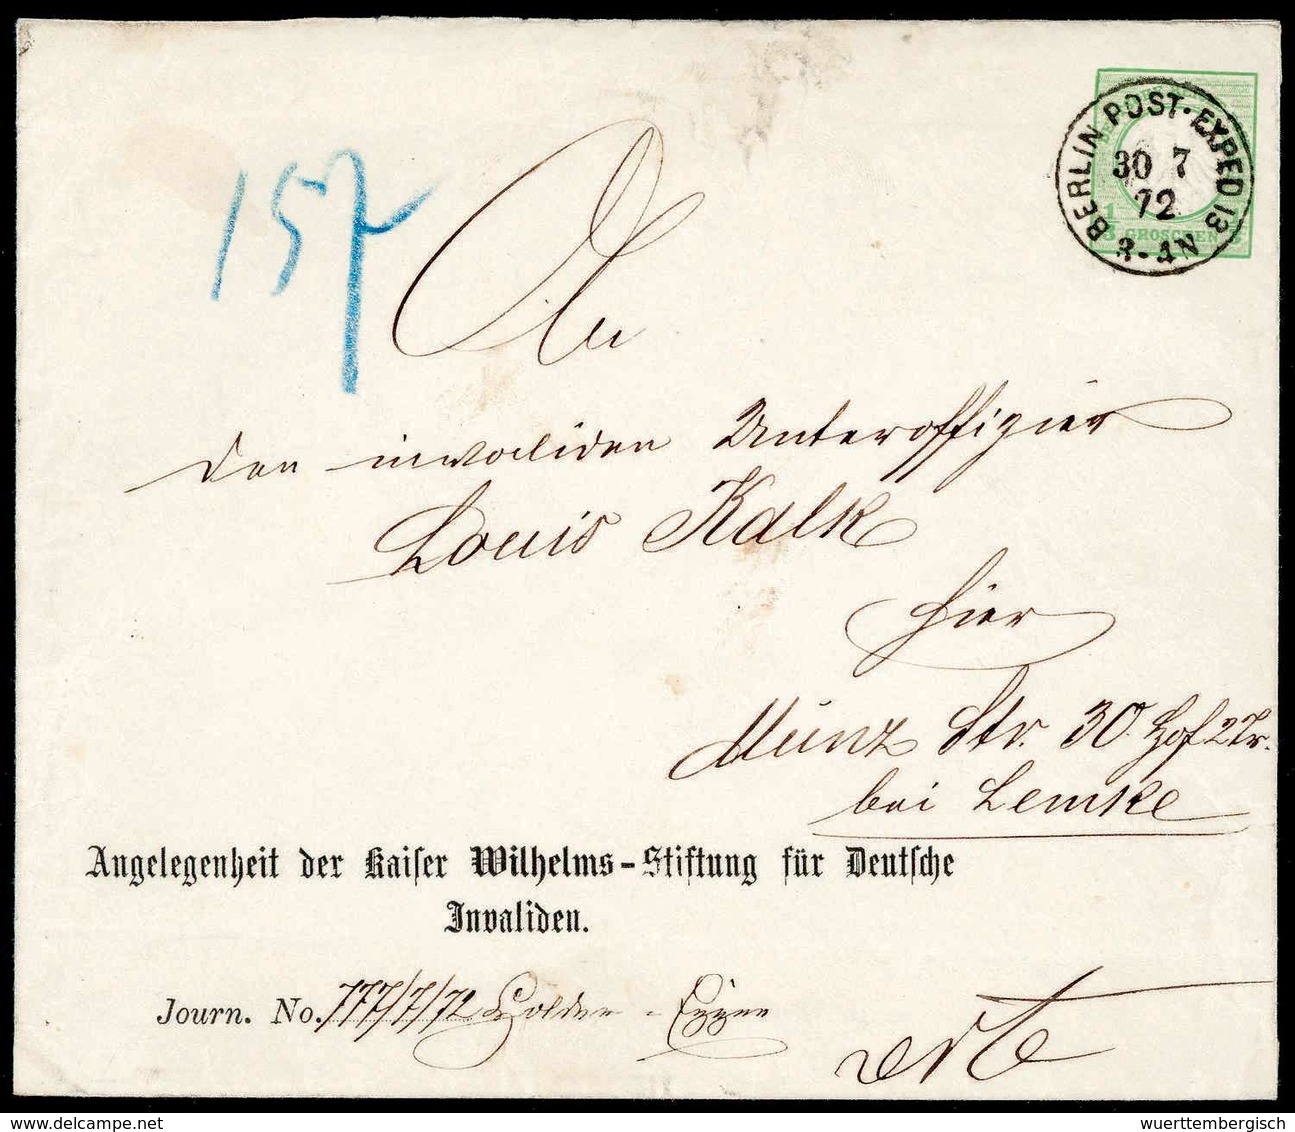 157
BERLIN POST-EXPED 13
30 7
72
3-4N
1/3 GROSCHEN 1/3
An
den invaliden Unteroffizier
Louis Kalk
hier
Münz Str. 30 Hof 2 Tr.
bei Lemke
Angelegenheit der Kaiſer Wilhelms-Stiftung für Deutſche
Invaliden.
Journ. No. 777/7/72
wuerttembergisch